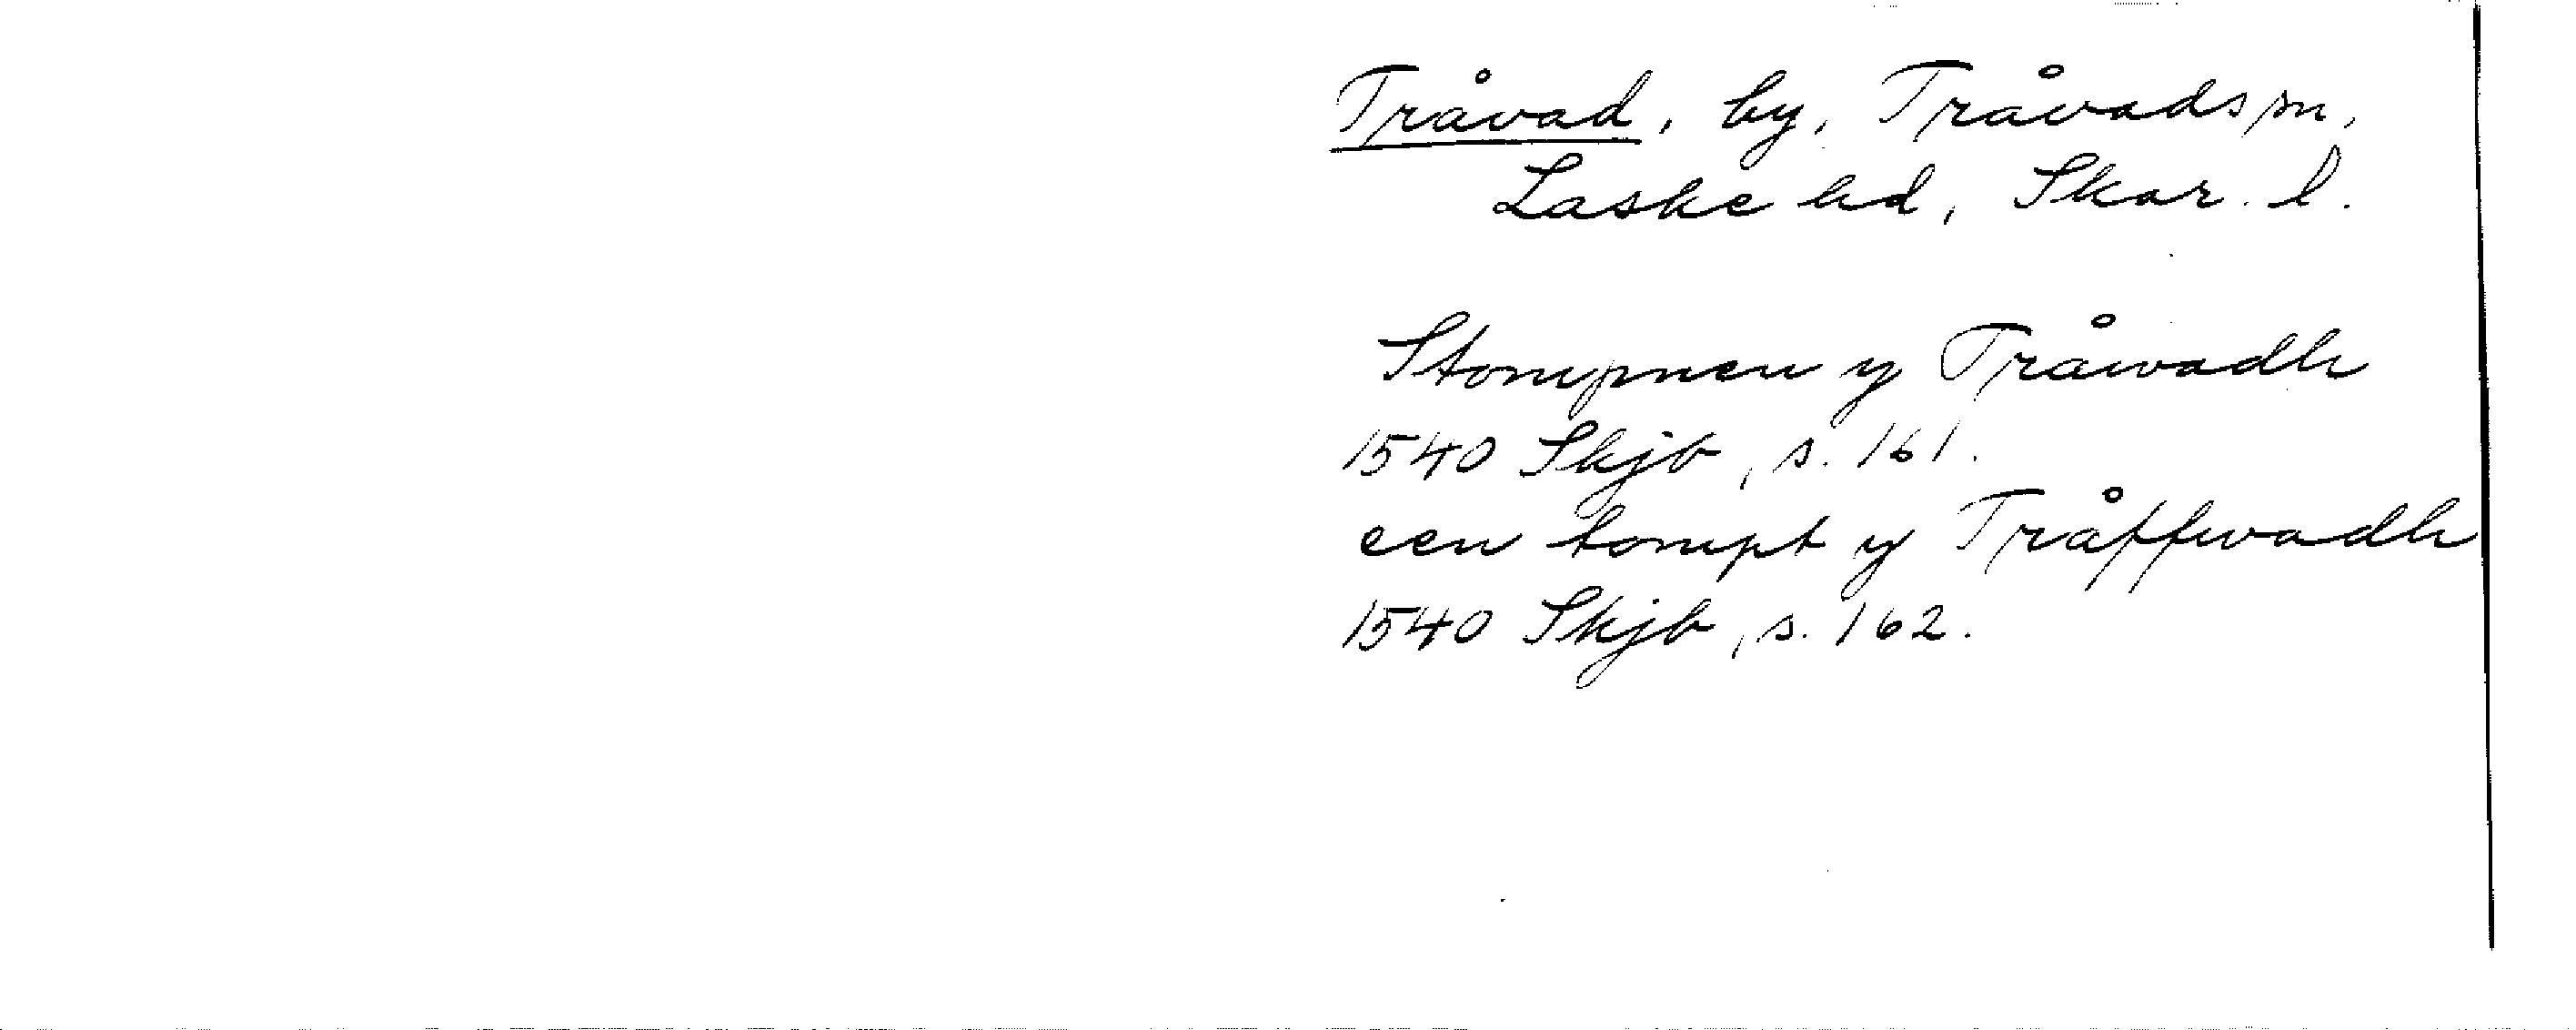 Tråvad, by, Tråvads sn,
Laske hd, Skar. l.
Stompnen y Tråwadh
1540 Skjb, s. 161.
een tompt y Tråffwadh
1540 Skjb, s. 162.